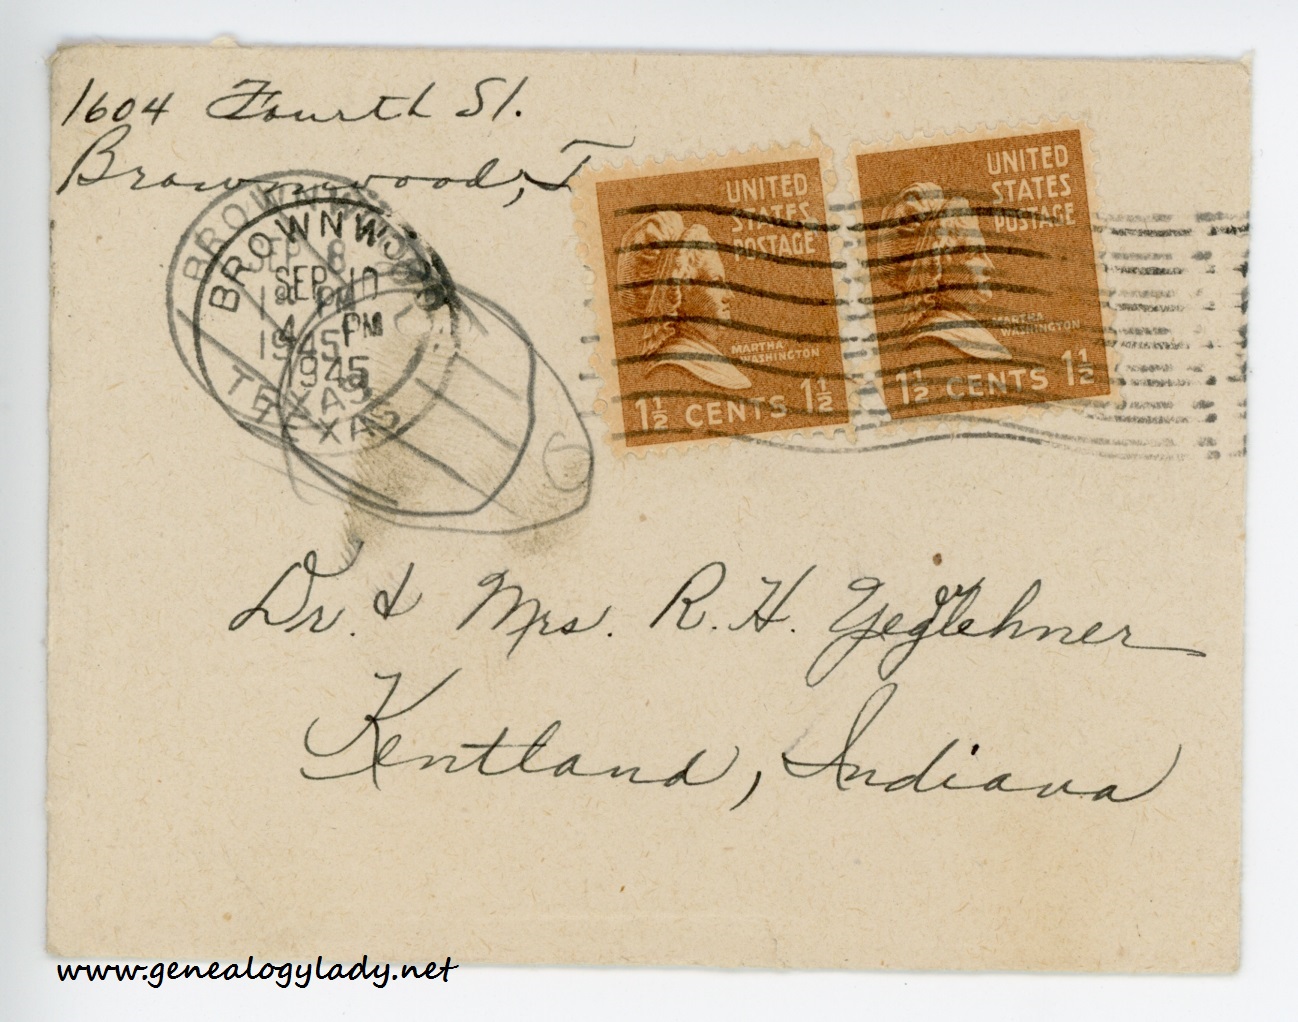 1604 Fourth St.
Brownwood, T
BROWNWOOD
SEP 8
1 PM
1945
TEXAS
BROWNWOOD
SEP 10
4 PM
1945
TEXAS
UNITED
STATES
POSTAGE
MARTHA
WASHINGTON
1½ CENTS 1½
UNITED
STATES
POSTAGE
MARTHA
WASHINGTON
1½ CENTS 1½
Dr. & Mrs. R. H. Yegerlehner
Kentland, Indiana
www.genealogylady.net